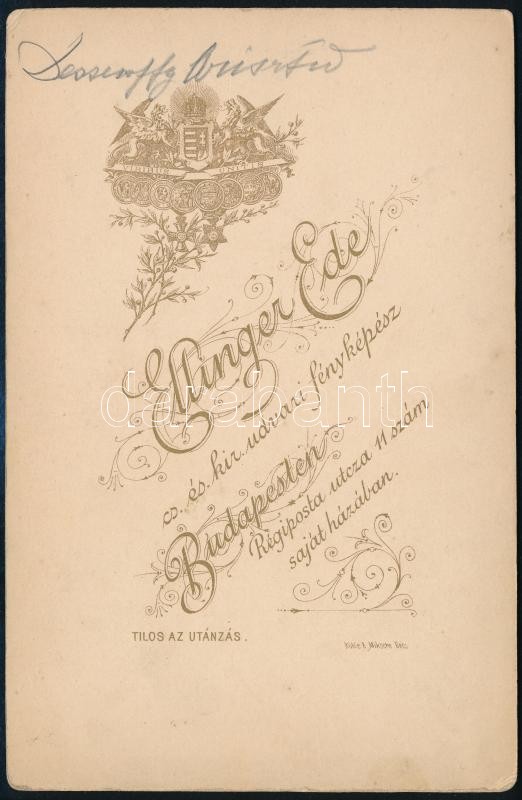 Dessewffy Arisztid
VIRIBUS UNITIS
Ellinger Ede
cs. és kir. udvari fényképész
Budapesten
Régiposta utcza 11 szám
saját házában.
TILOS AZ UTÁNZÁS.
darabanth